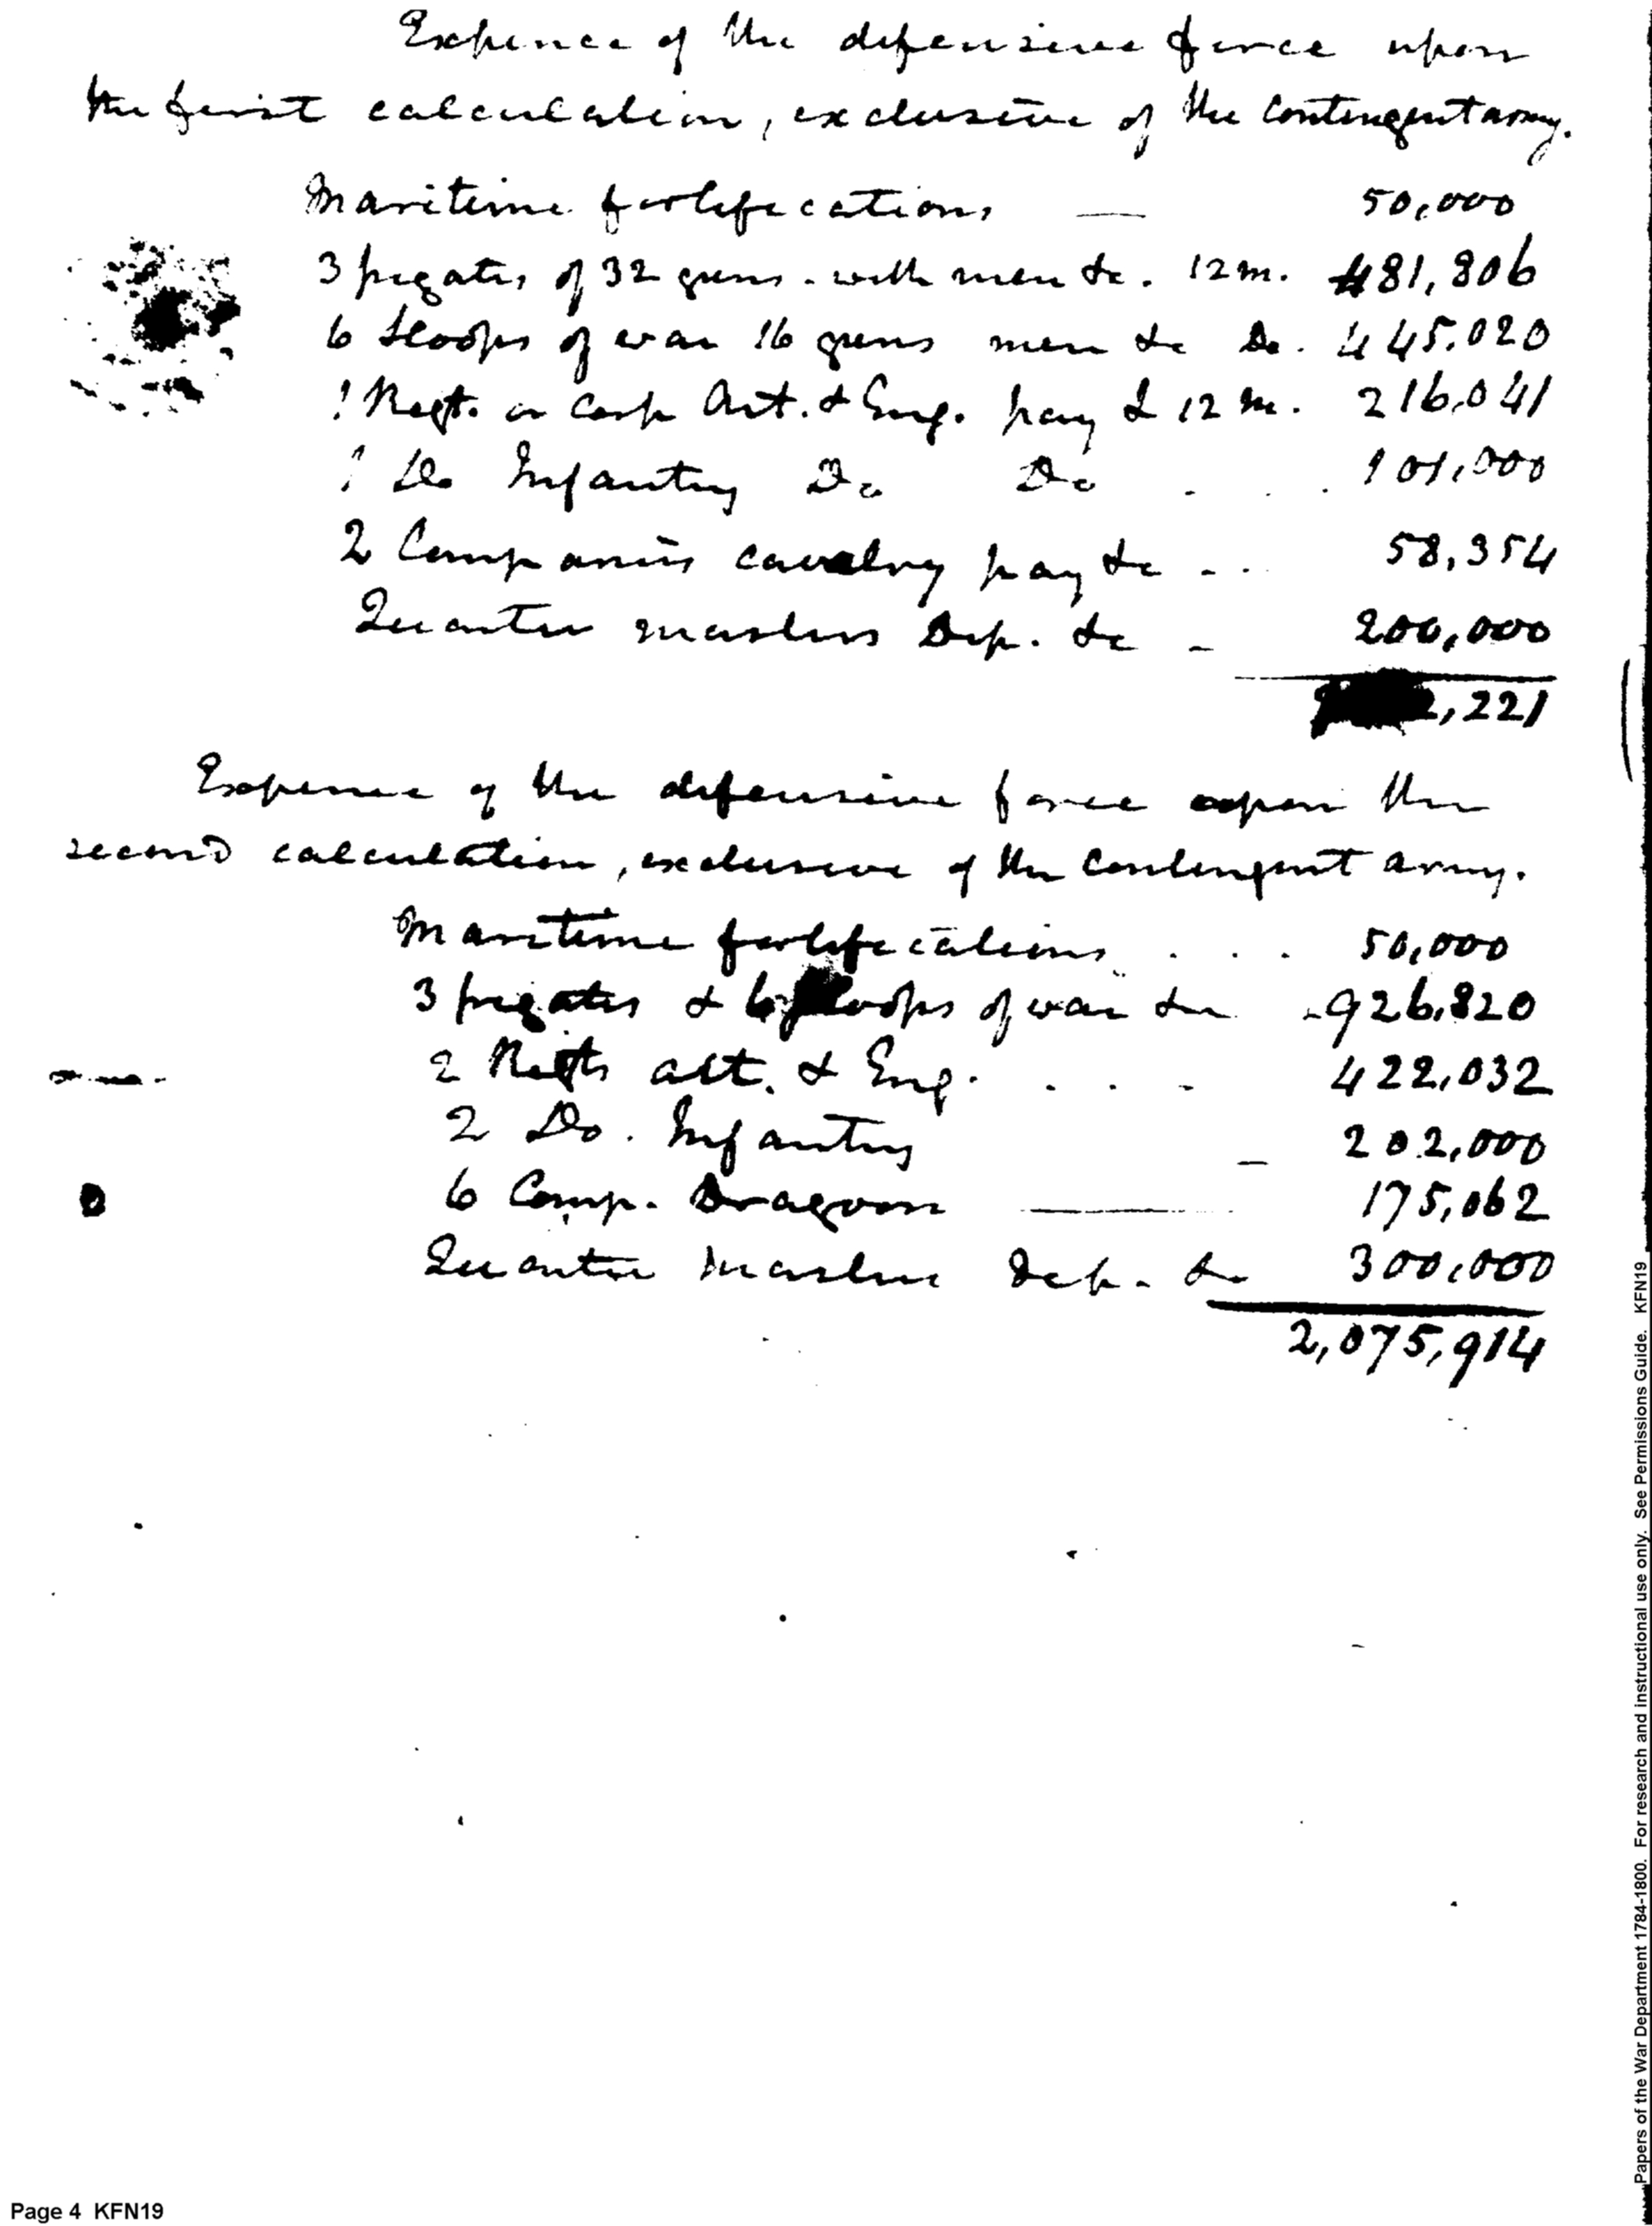 Expence of the defensive force upon
the first calculation, exclusive of the Contingent army.
Maritime fortifications — 50,000
3 frigates of 32 guns - with men &c. 12 m. 481,806
6 Sloops of war 16 guns men &c Do. 445,020
1 Regt. or Corp Art. & Eng. pay & 12 m. 216,041
1 Do Infantry Do Do . . . 101,000
2 Companies cavalry pay &c - .. 58,354
Quarter masters Dep. &c - 200,000
2,221
Expence of the defensive force upon the
second calculation, exclusive of the Contingent army.
Maritime fortifications . . . 50,000
3 frigates & 6 sloops of war &c - 926,820
2 Regts art. & Eng. . . - 422,032
2 Do. Infantry - 202,000
6 Comp. Dragoon — 175,062
Quarter Master Dep. &c 300,000
2,075,914
Papers of the War Department 1784-1800. For research and instructional use only. See Permissions Guide. KFN19
Page 4 KFN19